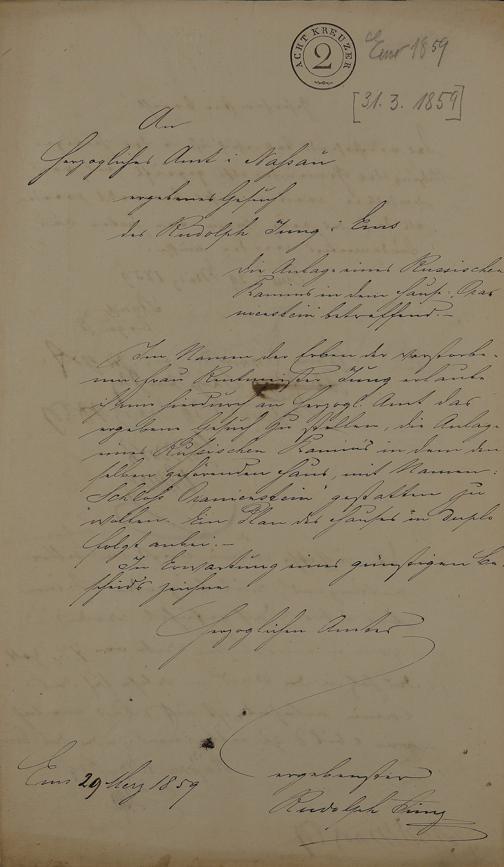 ACHT KREUZER
2
Ems 1859
[31. 3. 1859]
An
Herzogliches Amt i Nassau
ergebenes Gesuch
des Rudolph Jung i Ems
die Anlage eines Russischen
Kamins in dem Hause: Ora=
nierstein betreffend.-
Im Namen der Erben der verstorbe-
nen Frau Rentmeister Jung erlaube
ich mir hierdurch an Herzogl. Amt das
ergebene Gesuch zu stellen, die Anlage
eines Russischen Kamins in dem den
selben gehörenden Haus, mit Namen:
"Schloss Oranierstein" gestatten zu
wollen. Ein Plan des Hauses in duplo
folgt anbei.-
In Erwartung eines günstigen Be
scheids zeichne
Herzoglichen Amtes
ergebenster
Rudolph Jung
Ems 29 Merz 1859